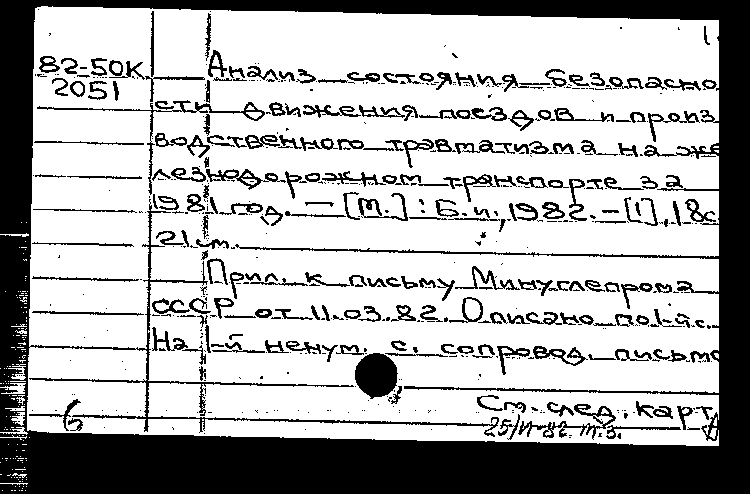 1.
82-50К Анализ состояния безопасно
2051
сти движения поездов и произ
водственного травматизма на же
лезнодорожном транспорте за
1981 год. — [М.] : Б. и., 1982. — [1], 18 с.
21 см.
Прил. к письму Минуглепрома
СССР от 11.03.82. Описано по 1-й с.
На 1-й ненум. с. сопровод. письмо
См. след. карт
6
25/ 82 т.з.